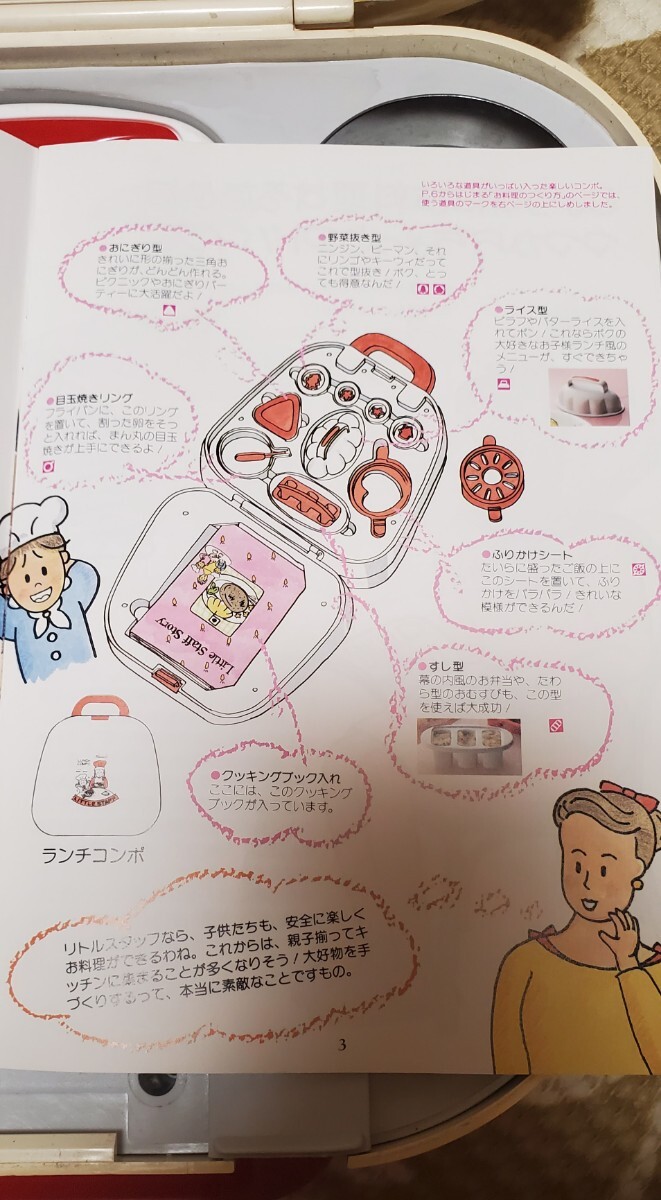 いろいろな道具がいっぱい入った楽しいコンポ。
P.6からはじまる「お料理のつくり方」のページでは、
使う道具のマークを右ページの上にしめしました。
●おにぎり型
きれいに形の揃った三角お
にぎりが、どんどん作れる。
ピクニックやおにぎりパー
ティーに大活躍だよ!
●野菜抜き型
ニンジン、ピーマン、それ
にリンゴやキーウィだって
これで型抜き!ボク、とっ
ても得意なんだ!
●ライス型
ピラフやバターライスを入
れてポン!これならボクの
大好きなお子様ランチ風の
メニューが、すぐできちゃ
う!
●目玉焼きリング
フライパンに、このリング
を置いて、割った卵をそっ
と入れれば、まん丸の目玉
焼きが上手にできるよ!
●ふりかけシート
たいらに盛ったご飯の上に
このシートを置いて、ふり
かけをパラパラ!きれいな
模様ができるんだ!
Little Staff Story
●すし型
幕の内風のお弁当や、たわ
ら型のおむすびも、この型
を使えば大成功!
●クッキングブック入れ
ここには、このクッキング
ブックが入っています。
LITTLE STAFF
ランチコンポ
リトルスタッフなら、子供たちも、安全に楽しく
お料理ができるわね。これからは、親子揃ってキ
ッチンに集まることが多くなりそう!大好物を手
づくりするって、本当に素敵なことですもの。
3